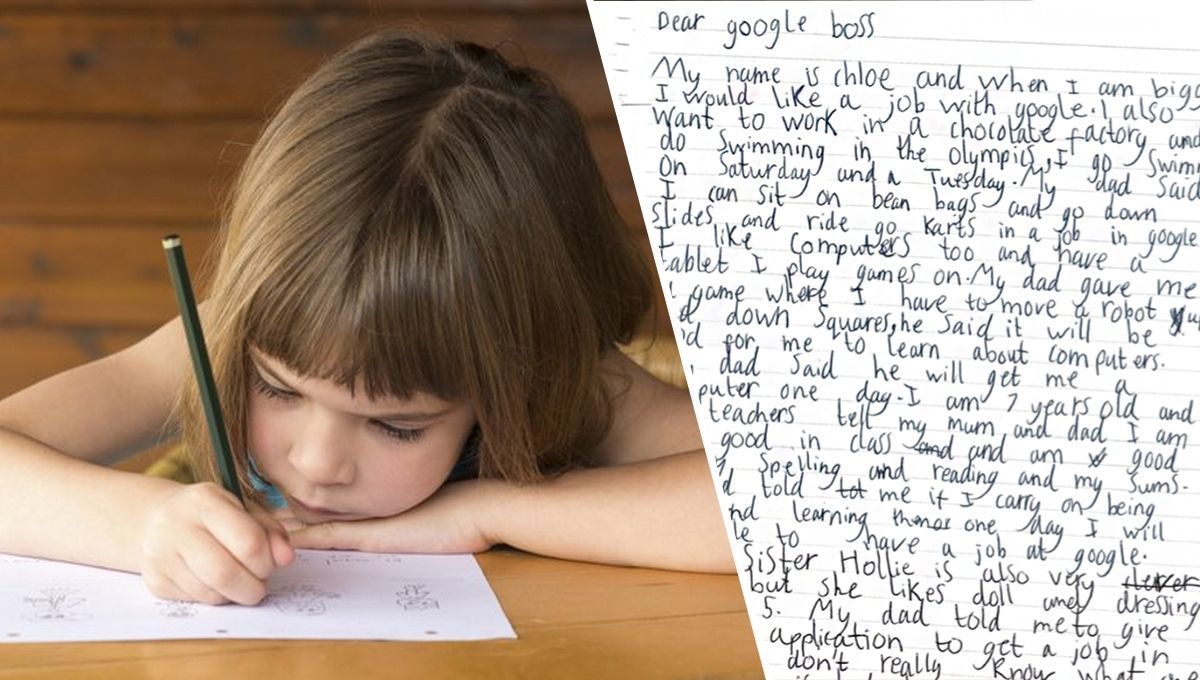 Dear google boss
My name is chloe and when I am bigg
I would like a job with google. I also
want to work in a chocolate factory and
do swimming in the olympics, I go swimm
on Saturday and a Tuesday. My dad said
I can sit on bean bags and go down
slides and ride go karts in a job in google
I like computers too and have a
tablet I play games on. My dad gave me
game where I have to move a robot
down squares, he said it will be
for me to learn about computers.
dad said he will get me a
puter one day. I am 7 years old and
teachers tell my mum and dad I am
good in class and and am good
spelling and reading and my sums.
told tot me if I carry on being
nd learning one day I will
le to have a job at google.
Sister Hollie is also very clever
but she likes doll and dressing
5. My dad told me to give
application to get a job in
don't really know what one